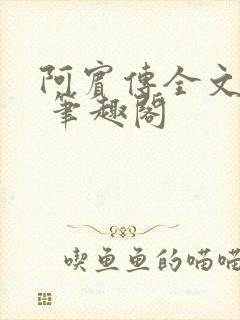 阿賓傳全文
筆趣閣
喫魚魚的喵喵